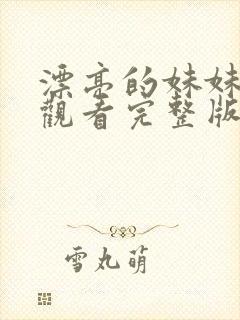 漂亮的妹妹
觀看完整版
雪丸萌